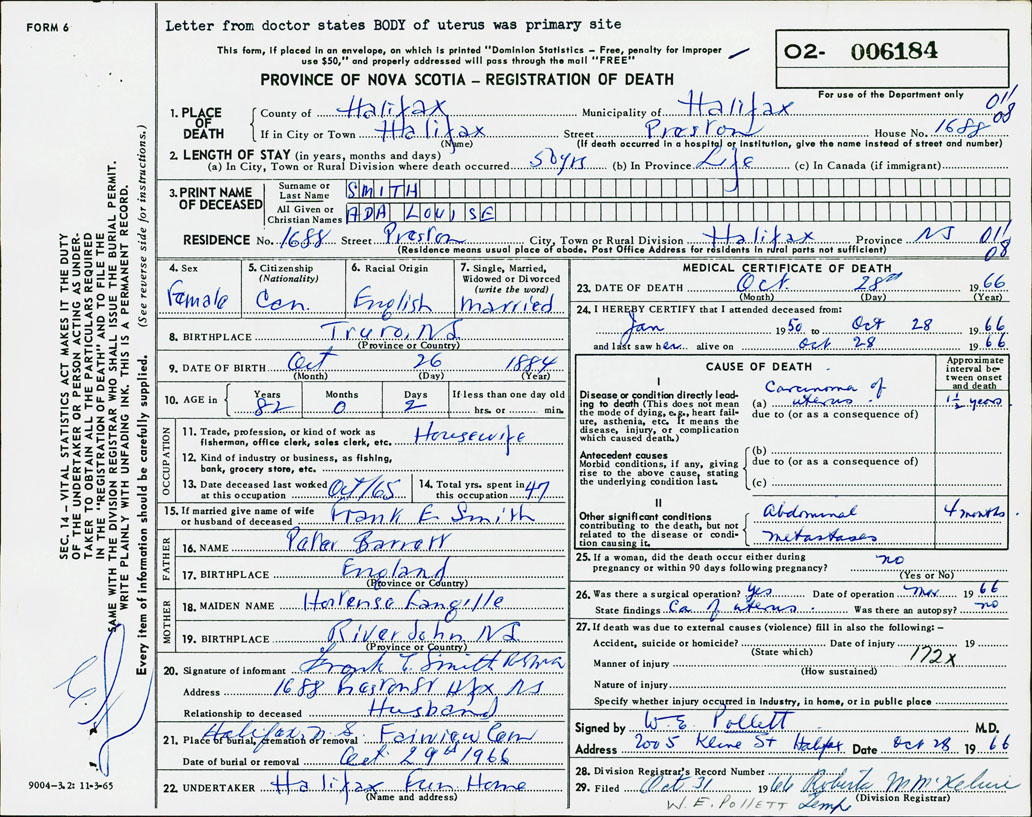 FORM 6
Letter from doctor states BODY of uterus was primary site
This form, if placed in an envelope, on which is printed "Dominion Statistics – Free, penalty for improper
use $50," and properly addressed will pass through the mail "FREE"
PROVINCE OF NOVA SCOTIA – REGISTRATION OF DEATH
O2- 006184
For use of the Department only
011
08
1. PLACE OF DEATH
County of Halifax Municipality of Halifax
If in City or Town Halifax Street Preston House No. 1688
(Name) (If death occurred in a hospital or institution, give the name instead of street and number)
2. LENGTH OF STAY (in years, months and days)
(a) In City, Town or Rural Division where death occurred 50 yrs (b) In Province Life (c) In Canada (if immigrant)
3. PRINT NAME OF DECEASED
Surname or Last Name SMITH
All Given or Christian Names ADA LOUISE
RESIDENCE No. 1688 Street Preston City, Town or Rural Division Halifax Province NS 011
08
(Residence means usual place of abode. Post Office Address for residents in rural parts not sufficient)
4. Sex Female
5. Citizenship (Nationality) Can.
6. Racial Origin English
7. Single, Married, Widowed or Divorced (write the word) Married
8. BIRTHPLACE Truro, NS
(Province or Country)
9. DATE OF BIRTH Oct 26 1884
(Month) (Day) (Year)
10. AGE in Years 82 Months 0 Days 2 If less than one day old hrs. or min.
OCCUPATION
11. Trade, profession, or kind of work as fisherman, office clerk, sales clerk, etc. Housewife
12. Kind of industry or business, as fishing, bank, grocery store, etc.
13. Date deceased last worked at this occupation Oct/65
14. Total yrs. spent in this occupation 47
15. If married give name of wife or husband of deceased Frank E Smith
FATHER
16. NAME Peter Barrett
17. BIRTHPLACE England
(Province or Country)
MOTHER
18. MAIDEN NAME Hortense Langille
19. BIRTHPLACE River John, NS
(Province or Country)
20. Signature of informant Frank E. Smith
Address 1688 Preston St Hfx NS
Relationship to deceased Husband
21. Place of burial, cremation or removal Halifax N.S. Fairview Cem
Date of burial or removal Oct 29th 1966
22. UNDERTAKER Halifax Fun Home
(Name and address)
MEDICAL CERTIFICATE OF DEATH
23. DATE OF DEATH Oct. 28th 1966
(Month) (Day) (Year)
24. I HEREBY CERTIFY that I attended deceased from:
Jan 1950 to Oct 28 1966
and last saw her alive on Oct 28 1966
CAUSE OF DEATH
Approximate interval between onset and death
I
Disease or condition directly leading to death (This does not mean the mode of dying, e.g., heart failure, asthenia, etc. It means the disease, injury, or complication which caused death.)
(a) Carcinoma of uterus 1½ years
due to (or as a consequence of)
Antecedent causes
Morbid conditions, if any, giving rise to the above cause, stating the underlying condition last.
(b)
due to (or as a consequence of)
(c)
II
Other significant conditions contributing to the death, but not related to the disease or condition causing it.
Abdominal metastases 4 months
25. If a woman, did the death occur either during pregnancy or within 90 days following pregnancy? no
(Yes or No)
26. Was there a surgical operation? yes Date of operation Mar 1966
State findings Ca. of uterus Was there an autopsy? no
27. If death was due to external causes (violence) fill in also the following: –
Accident, suicide or homicide? Date of injury 19
(State which)
172x
Manner of injury
(How sustained)
Nature of injury
Specify whether injury occurred in industry, in home, or in public place
Signed by W E Pollett M.D.
Address 2005 Kline St Halifax Date Oct 28 1966
28. Division Registrar's Record Number
29. Filed Oct 31 1966 Roberta M McKelvie
(Division Registrar)
W. E. POLLETT Temp
SEC. 14 – VITAL STATISTICS ACT MAKES IT THE DUTY
OF THE UNDERTAKER OR PERSON ACTING AS UNDER-
TAKER TO OBTAIN ALL THE PARTICULARS REQUIRED
IN THE "REGISTRATION OF DEATH" AND TO FILE THE
SAME WITH THE DIVISION REGISTRAR WHO SHALL ISSUE THE BURIAL PERMIT.
WRITE PLAINLY WITH UNFADING INK. THIS IS A PERMANENT RECORD.
Every item of information should be carefully supplied. (See reverse side for instructions.)
9004-3.2: 11-3-65